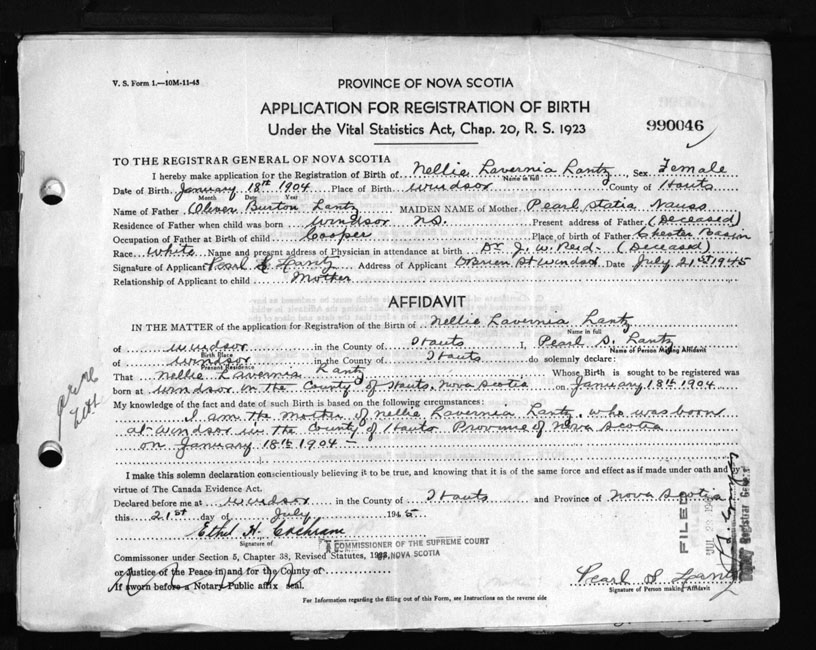 V. S. Form 1.—10M-11-43
PROVINCE OF NOVA SCOTIA
APPLICATION FOR REGISTRATION OF BIRTH
Under the Vital Statistics Act, Chap. 20, R. S. 1923
990046
TO THE REGISTRAR GENERAL OF NOVA SCOTIA
I hereby make application for the Registration of Birth of Nellie Lavernia Lantz, Sex Female
Name in full
Date of Birth January 18th 1904 Place of Birth Windsor County of Hants
Month Date Year
Name of Father Oliver Burton Lantz MAIDEN NAME of Mother Pearl Statia Nauss
Residence of Father when child was born Windsor N.S. Present address of Father (Deceased)
Occupation of Father at Birth of child Cooper Place of birth of Father Chester Basin
Race White Name and present address of Physician in attendance at birth Dr. J. W. Reid - (Deceased)
Signature of Applicant Pearl S Lantz Address of Applicant O'Brien St Windsor Date July 21st 1945
Relationship of Applicant to child Mother
AFFIDAVIT
IN THE MATTER of the application for Registration of the Birth of Nellie Lavernia Lantz
Name in full
of Windsor in the County of Hants I, Pearl S. Lantz
Birth Place Name of Person Making Affidavit
of Windsor in the County of Hants do solemnly declare:
Present Residence
That Nellie Lavernia Lantz Whose Birth is sought to be registered was
born at Windsor in the County of Hants, Nova Scotia on January 18th 1904
My knowledge of the fact and date of such Birth is based on the following circumstances:
I am the Mother of Nellie Lavernia Lantz, who was born
at Windsor in the County of Hants Province of Nova Scotia
on January 18th 1904 -
I make this solemn declaration conscientiously believing it to be true, and knowing that it is of the same force and effect as if made under oath and by
virtue of The Canada Evidence Act.
Declared before me at Windsor in the County of Hants and Province of Nova Scotia
this 21st day of July 1945
Ethel H. Cochram
Signature of
A COMMISSIONER OF THE SUPREME COURT
OF NOVA SCOTIA
Commissioner under Section 5, Chapter 38, Revised Statutes, 1923,
or Justice of the Peace in and for the County of
If sworn before a Notary Public affix seal.
Pearl S Lantz
Signature of Person making Affidavit
For Information regarding the filling out of this Form, see Instructions on the reverse side
FILED